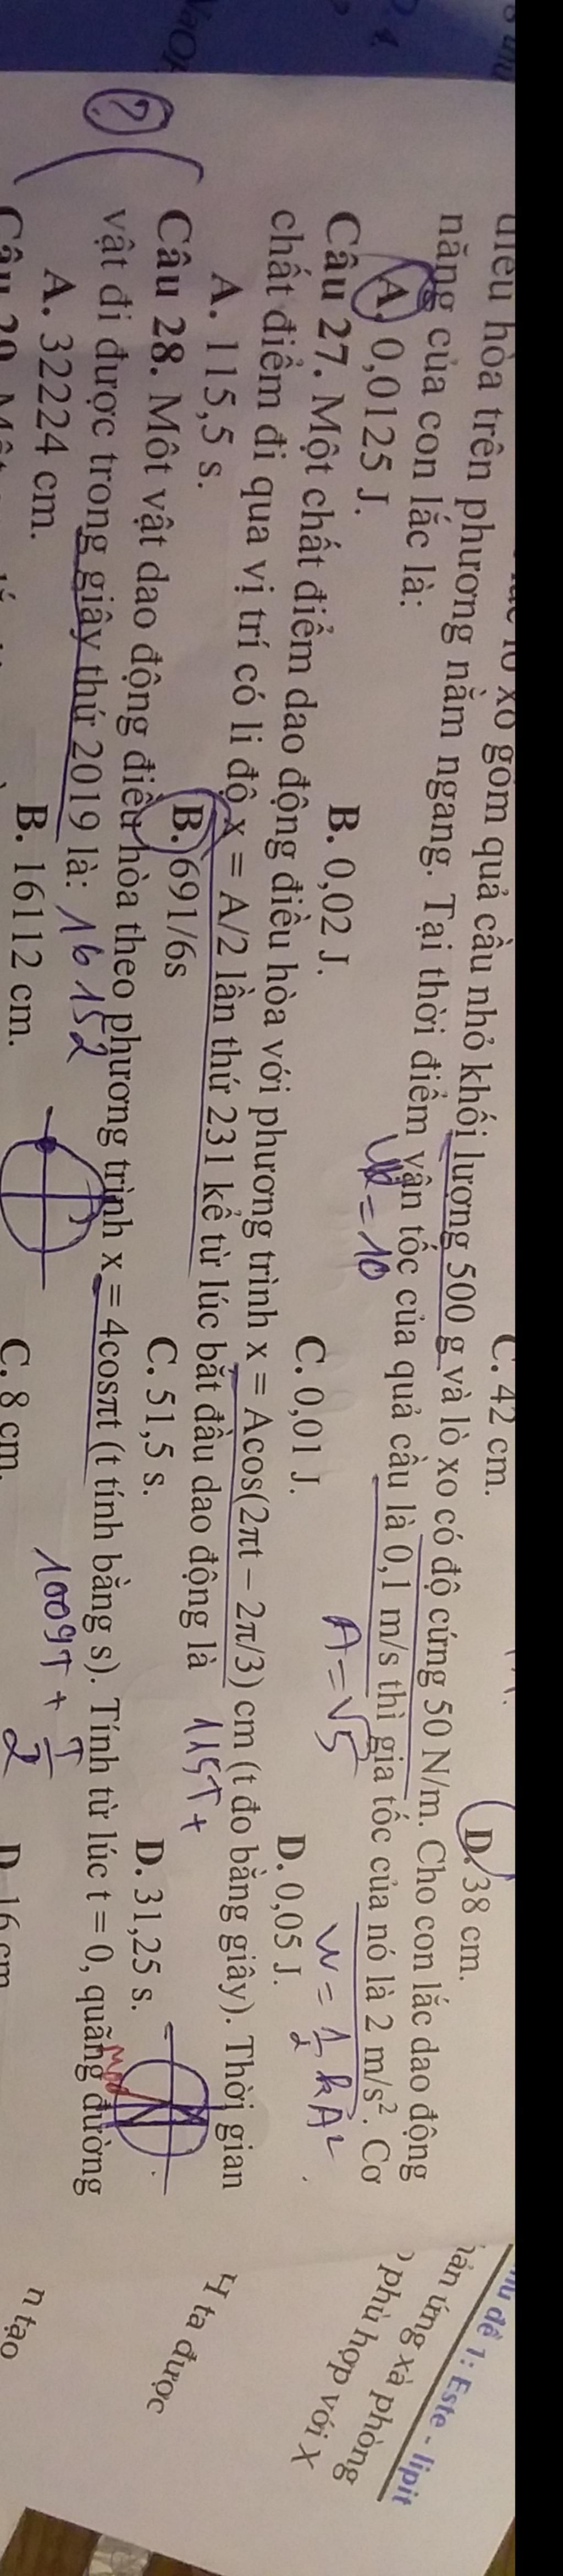 C. 42 cm. D. 38 cm.
lò xo gồm quả cầu nhỏ khối lượng 500 g và lò xo có độ cứng 50 N/m. Cho con lắc dao động
điều hòa trên phương nằm ngang. Tại thời điểm vận tốc của quả cầu là 0,1 m/s thì gia tốc của nó là 2 m/s². Cơ
năng của con lắc là:
A. 0,0125 J. B. 0,02 J. C. 0,01 J. D. 0,05 J.
= 10 A = √5 W = 1/2 kA²
Câu 27. Một chất điểm dao động điều hòa với phương trình x = Acos(2πt – 2π/3) cm (t đo bằng giây). Thời gian
chất điểm đi qua vị trí có li độ x = A/2 lần thứ 231 kể từ lúc bắt đầu dao động là 115T +
A. 115,5 s. B. 691/6s C. 51,5 s. D. 31,25 s.
? Câu 28. Một vật dao động điều hòa theo phương trình x = 4cosπt (t tính bằng s). Tính từ lúc t = 0, quãng đường
vật đi được trong giây thứ 2019 là: 16152 1009T + T/2
A. 32224 cm. B. 16112 cm. C. 8 cm. D. 16 cm
đề 1: Este - lipit
ứng xà phòng
phù hợp với X
Y ta được
n tạo